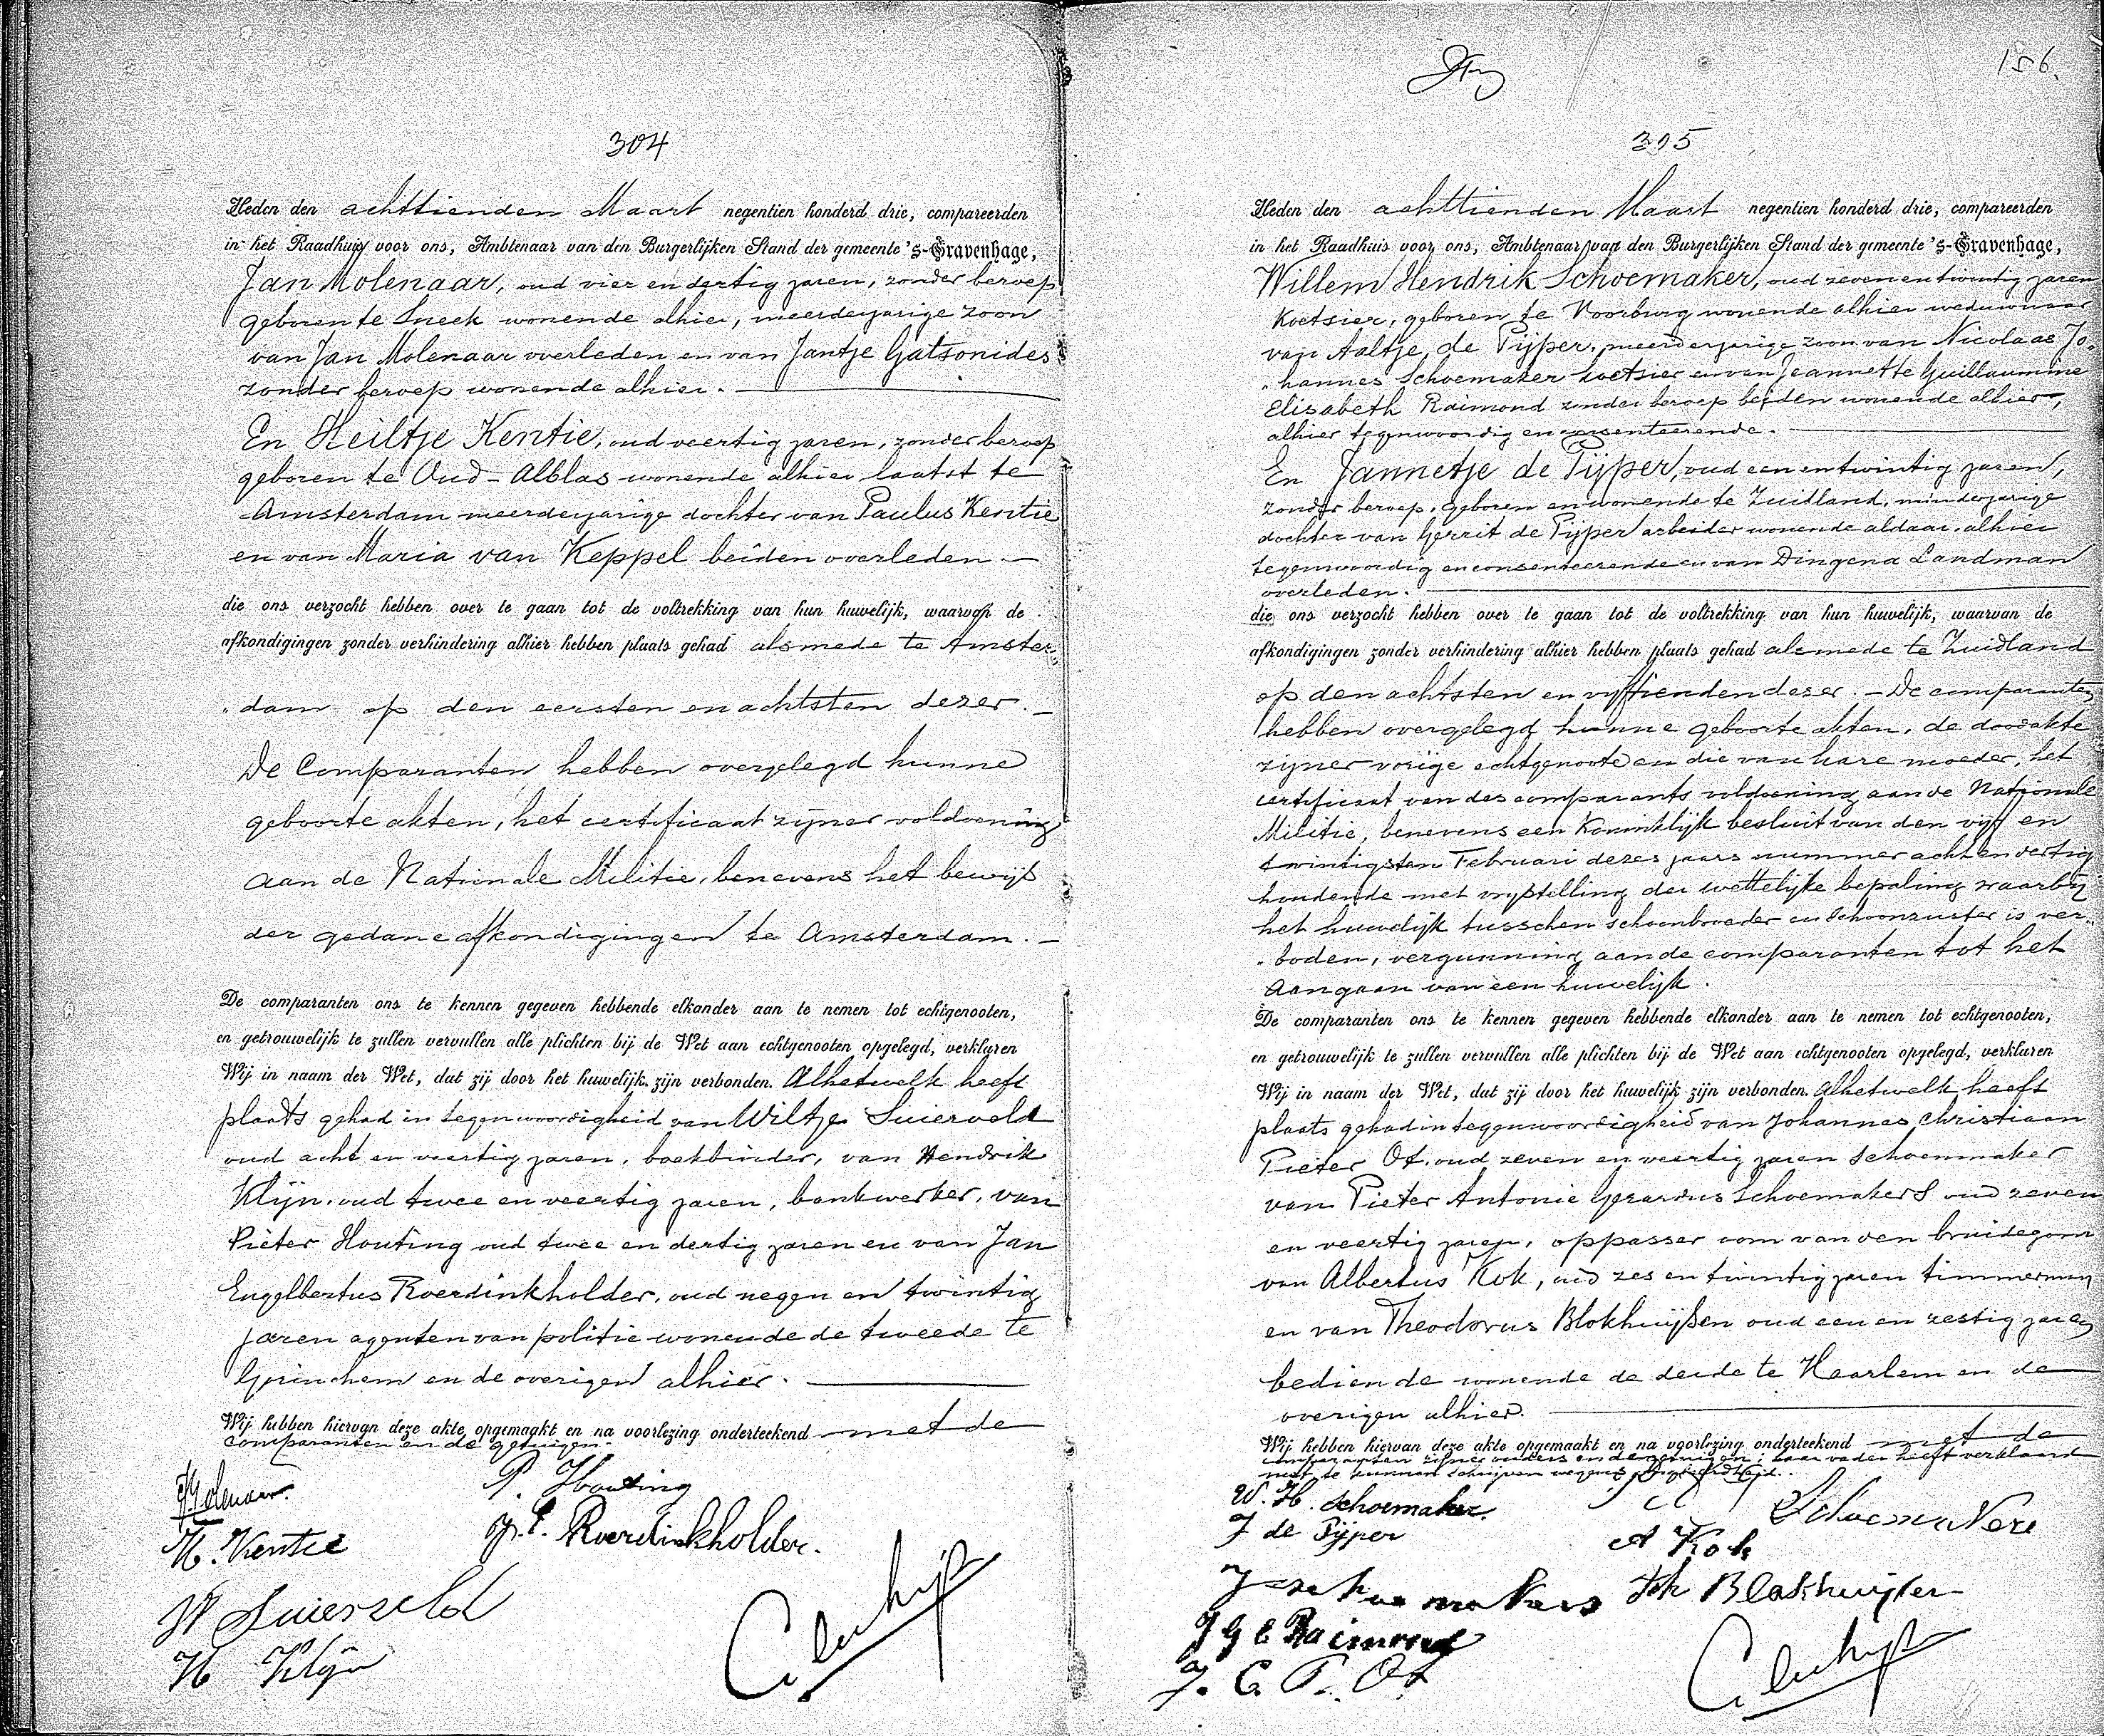 304
Heden den achttienden Maart negentien honderd drie, compareerden
in het Raadhuis voor ons, Ambtenaar van den Burgerlijken Stand der gemeente 's-Gravenhage,
Jan Molenaar, oud vier en dertig jaren, zonder beroep
geboren te Sneek wonende alhier, meerderjarige zoon
van Jan Molenaar overleden en van Jantje Gatsonides
zonder beroep wonende alhier.
En Heiltje Kentie, oud veertig jaren, zonder beroep
geboren te Oud-Alblas wonende alhier laatst te
Amsterdam meerderjarige dochter van Paulus Kentie
en van Maria van Keppel beiden overleden.
die ons verzocht hebben over te gaan tot de voltrekking van hun huwelijk, waarvan de
afkondigingen zonder verhindering alhier hebben plaats gehad alsmede te Amster-
dam op den eersten en achtsten dezer.
De Comparanten hebben overgelegd hunne
geboorte akten, het certificaat zijner voldoening
aan de Nationale Militie, benevens het bewijs
der gedane afkondigingen te Amsterdam.
De comparanten ons te kennen gegeven hebbende elkander aan te nemen tot echtgenooten,
en getrouwelijk te zullen vervullen alle plichten bij de Wet aan echtgenooten opgelegd, verklaren
Wij in naam der Wet, dat zij door het huwelijk zijn verbonden. Alhetwelk heeft
plaats gehad in tegenwoordigheid van Wiltje Suierveld
oud acht en veertig jaren, boekbinder, van Hendrik
Klijn, oud twee en veertig jaren, bankwerker, van
Pieter Houting oud twee en dertig jaren en van Jan
Engelbertus Roerdinkholder, oud negen en twintig
jaren agenten van politie wonende de tweede te
Gorinchem en de overigen alhier.
Wij hebben hiervan deze akte opgemaakt en na voorlezing onderteekend met de
comparanten en de getuigen.
J Molenaar.
P. Houting
H. Kentie
J. E. Roerdinkholder.
W Suierveld
H Klijn
156.
305
Heden den achttienden Maart negentien honderd drie, compareerden
in het Raadhuis voor ons, Ambtenaar van den Burgerlijken Stand der gemeente 's-Gravenhage,
Willem Hendrik Schoemaker, oud zevenentwintig jaren
Koetsier, geboren te Voorburg wonende alhier weduwnaar
van Aaltje de Pijper, meerderjarige zoon van Nicolaas Jo-
hannes Schoemaker koetsier en van Jeannette Guillaumine
Elisabeth Raimond zonder beroep beiden wonende alhier,
alhier tegenwoordig en consenteerende.
En Jannetje de Pijper, oud een en twintig jaren,
zonder beroep, geboren en wonende te Zuidland, minderjarige
dochter van Gerrit de Pijper arbeider wonende aldaar, alhier
tegenwoordig en consenteerende en van Dingena Landman
overleden.
die ons verzocht hebben over te gaan tot de voltrekking van hun huwelijk, waarvan de
afkondigingen zonder verhindering alhier hebben plaats gehad alsmede te Zuidland
op den achtsten en vijftienden dezer. - De comparanten
hebben overgelegd hunne geboorte akten, de doodakte
zijner vorige echtgenoote en die van hare moeder, het
certificaat van des comparants voldoening aan de Nationale
Militie, benevens een Koninklijk besluit van den vijf en
twintigsten Februari dezes jaars nummer acht en dertig
houdende met vrijstelling der wettelijke bepaling waarbij
het huwelijk tusschen schoonbroeder en schoonzuster is ver-
boden, vergunning aan de comparanten tot het
aangaan van een huwelijk.
De comparanten ons te kennen gegeven hebbende elkander aan te nemen tot echtgenooten,
en getrouwelijk te zullen vervullen alle plichten bij de Wet aan echtgenooten opgelegd, verklaren
Wij in naam der Wet, dat zij door het huwelijk zijn verbonden. Alhetwelk heeft
plaats gehad in tegenwoordigheid van Johannes Christiaan
Pieter Ot, oud zeven en veertig jaren schoenmaker
van Pieter Antonie Gerardus Schoemakers oud zeven
en veertig jaren, oppasser oom van den bruidegom
van Albertus Kok, oud zes en twintig jaren timmerman
en van Theodorus Blokhuijsen oud een en zestig jaren
bediende wonende de derde te Haarlem en de
overigen alhier.
Wij hebben hiervan deze akte opgemaakt en na voorlezing onderteekend met de
comparanten zijner ouders en de getuigen; haar vader heeft verklaard
niet te kunnen schrijven wegens
W. H. Schoemaker.
J de Pijper
A Kok
Th Blokhuijsen
J G E Raimond
J. C. P. Ot